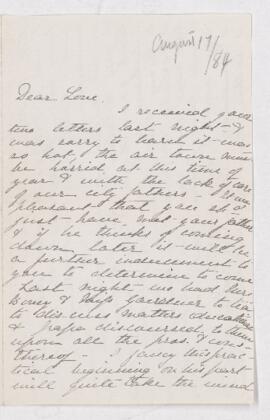 August 17/84
Dear Love.
I received your
two letters last night - &
was sorry to learn it was
so hot, the air in town must
be horrid, at this time of
year & with the lack of care
of our city fathers -
pleasant that can
just have your father
& if he thinks of coming
down later it will be
a further inducement to
you to determine to come
Last night we had Mrs
& Miss Gardner to tea
to discuss matters
& papa discoursed to them
upon all the pros. & cons
thereof - I fancy this prac-
tical beginning on his part
will quite take the wind